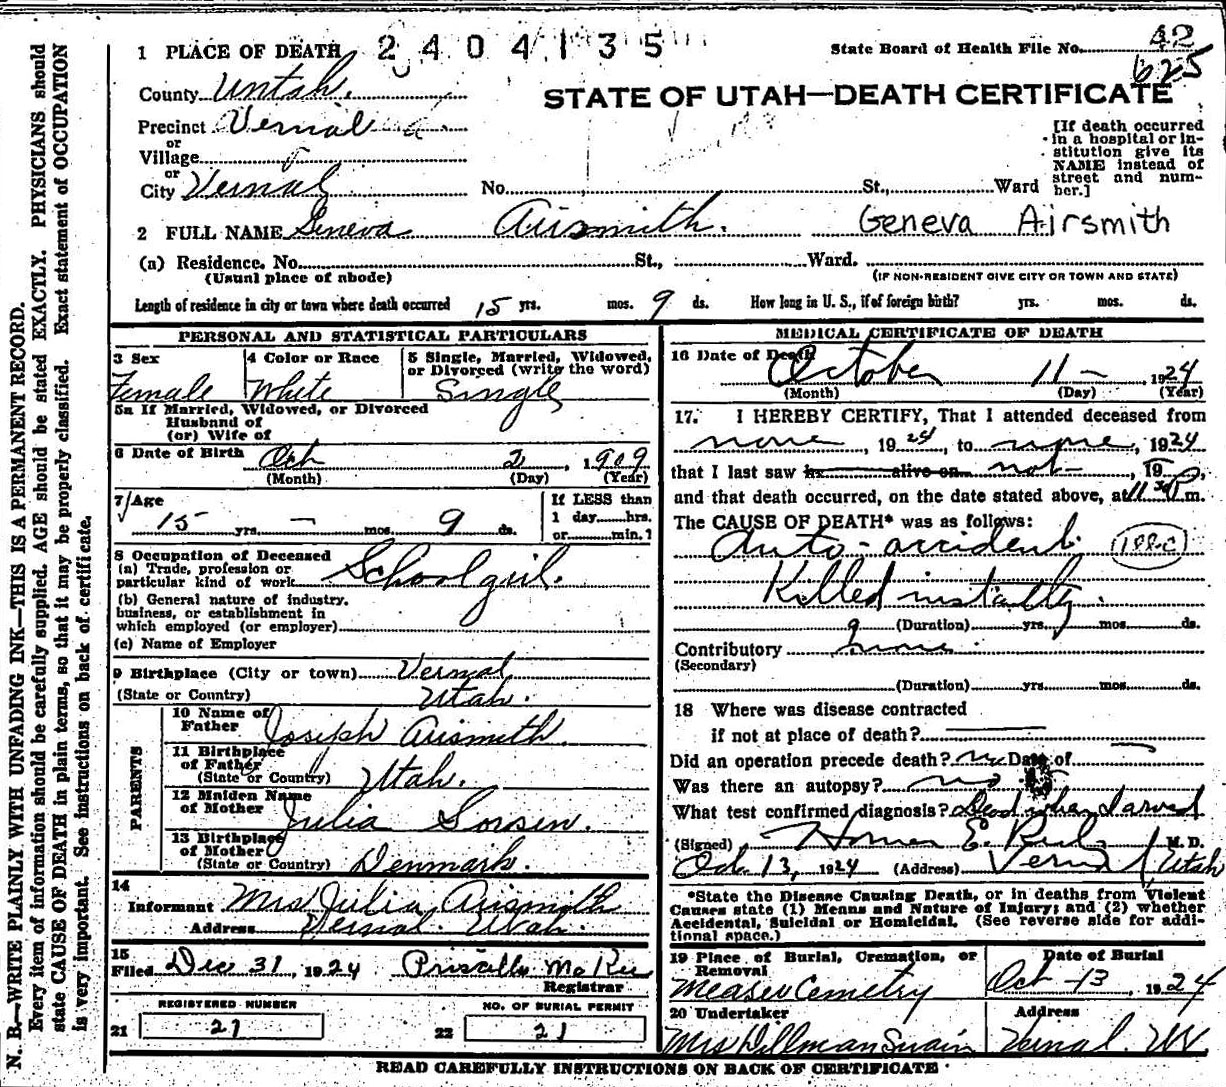 1 PLACE OF DEATH 2404135 State Board of Health File No. 42
625
County Untah.
STATE OF UTAH—DEATH CERTIFICATE
Precinct Vernal
or
Village
or
City Vernal No. St., Ward
[If death occurred
in a hospital or in-
stitution give its
NAME instead of
street and num-
ber.]
2 FULL NAME Geneva Airsmith. Geneva Airsmith
(a) Residence. No. St., Ward.
(Usual place of abode) (IF NON-RESIDENT GIVE CITY OR TOWN AND STATE)
Length of residence in city or town where death occurred 15 yrs. mos. 9 ds. How long in U. S., if of foreign birth? yrs. mos. ds.
PERSONAL AND STATISTICAL PARTICULARS
3 Sex 4 Color or Race 5 Single, Married, Widowed,
or Divorced (write the word)
Female White Single
5a If Married, Widowed, or Divorced
Husband of
(or) Wife of
6 Date of Birth Oct 2, 1909
(Month) (Day) (Year)
7 Age If LESS than
15 yrs. — mos. 9 ds. 1 day......hrs.
or......min.?
8 Occupation of Deceased
(a) Trade, profession or
particular kind of work School girl.
(b) General nature of industry,
business, or establishment in
which employed (or employer)
(c) Name of Employer
9 Birthplace (City or town) Vernal
(State or Country) Utah.
PARENTS
10 Name of
Father Joseph Airsmith.
11 Birthplace
of Father
(State or Country) Utah.
12 Maiden Name
of Mother Julia Sorsen.
13 Birthplace
of Mother
(State or Country) Denmark.
14
Informant Mrs Julia Airsmith
Address Vernal. Utah.
15
Filed Dec 31, 1924 Priscilla McKee
Registrar
REGISTERED NUMBER NO. OF BURIAL PERMIT
21 21 22 21
MEDICAL CERTIFICATE OF DEATH
16 Date of Death October 11 — , 1924
(Month) (Day) (Year)
17. I HEREBY CERTIFY, That I attended deceased from
none, 1924, to none, 1924
that I last saw h alive on not, 19
and that death occurred, on the date stated above, at 11 30 P m.
The CAUSE OF DEATH* was as follows:
Auto-accident. (188-C)
Killed instantly.
(Duration) yrs. mos. ds.
Contributory none.
(Secondary)
(Duration) yrs. mos. ds.
18 Where was disease contracted
if not at place of death? —
Did an operation precede death? no Date of —
Was there an autopsy? no
What test confirmed diagnosis? Dead when I arived
(Signed) Homer E. Rich M. D.
Oct 13, 1924 (Address) Vernal Utah
*State the Disease Causing Death, or in deaths from Violent
Causes state (1) Means and Nature of Injury; and (2) whether
Accidental, Suicidal or Homicidal. (See reverse side for addi-
tional space.)
19 Place of Burial, Cremation, or Date of Burial
Removal
Measer Cemetry Oct - 13, 1924
20 Undertaker Address
Mrs Dillman Swain Vernal. Ut
READ CAREFULLY INSTRUCTIONS ON BACK OF CERTIFICATE
N. B.—WRITE PLAINLY WITH UNFADING INK—THIS IS A PERMANENT RECORD.
Every item of information should be carefully supplied. AGE should be stated EXACTLY. PHYSICIANS should
state CAUSE OF DEATH in plain terms, so that it may be properly classified. Exact statement of OCCUPATION
is very important. See instructions on back of certificate.